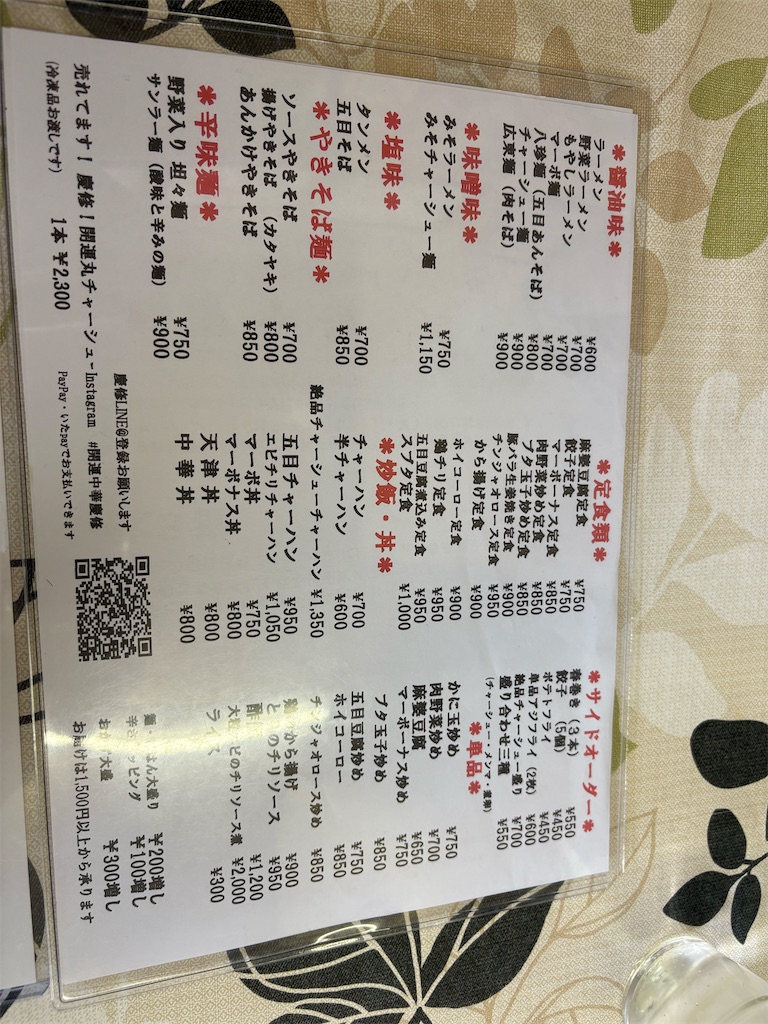 ＊醤油味＊
ラーメン ¥600
野菜ラーメン ¥700
もやしラーメン ¥700
マーボ麺 ¥700
八珍麺（五目あんそば） ¥800
チャーシュー麺 ¥900
広東麺（肉そば） ¥900
＊味噌味＊
みそラーメン ¥750
みそチャーシュー麺 ¥1,150
＊塩味＊
タンメン ¥700
五目そば ¥850
＊やきそば麺＊
ソースやきそば ¥700
揚げやきそば （カタヤキ） ¥800
あんかけやきそば ¥850
＊辛味麺＊
野菜入り 坦々麺 ¥750
サンラー麺（酸味と辛みの麺） ¥900
＊定食類＊
麻婆豆腐定食 ¥750
餃子定食 ¥750
マーボーナス定食 ¥850
肉野菜炒め定食 ¥850
ブタ玉子炒め定食 ¥850
豚バラ生姜焼き定食 ¥900
チンジャオロース定食 ¥950
から揚げ定食 ¥900
ホイコーロー定食 ¥900
鶏チリ定食 ¥950
五目豆腐煮込み定食 ¥950
スブタ定食 ¥1,000
＊炒飯・丼＊
チャーハン ¥700
半チャーハン ¥600
絶品チャーシューチャーハン ¥1,350
五目チャーハン ¥950
エビチリチャーハン ¥1,050
マーボ丼 ¥750
マーボナス丼 ¥800
天津丼 ¥800
中華丼 ¥800
＊サイドオーダー＊
春巻き（3本） ¥550
餃子 （5個） ¥450
ポテトフライ ¥450
単品アジフライ（2枚） ¥600
絶品チャーシュー盛り ¥700
盛り合わせ三種 ¥550
（チャーシュー・メンマ・
＊単品＊
かに玉炒め ¥750
肉野菜炒め ¥700
麻婆豆腐 ¥650
マーボーナス炒め ¥750
ブタ玉子炒め ¥850
五目豆腐炒め ¥750
ホイコーロー ¥850
チンジャオロース炒め ¥850
から揚げ ¥900
のチリソース ¥950
¥1,200
のチリソース煮 ¥2,000
ライス ¥300
大盛り ¥200増し
ッピング ¥100増し
大盛 ¥300増し
は1,500円以上から承ります
慶修LINE@登録お願いします
売れてます！慶修！開運丸チャーシューInstagram #開運中華慶修
（冷凍品お渡しです） 1本 ¥2,300
PayPay・いたpayでお支払いできます